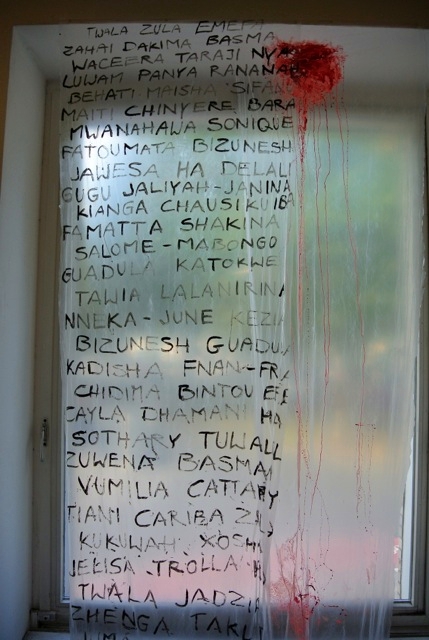 TWALA ZULA EMEFA
ZAHAI DAKIMA BASMA
WACEERA TARAJI
PANYA
BEHATI MAISHA
MAITI CHINYERE BARA
MWANAHAWA SONIQUE
FATOUMATA BIZUNESH
JAWESA HA DELALI
GUGU JALIYAH-JANINA
KIANGA CHAUSIKU
FAMATTA SHAKINA
SALOME-MABONGO
GUADULA KATOKWE
TAWIA LALANIRINA
NNEKA-JUNE KEZIA
BIZUNESH GUADU
KADISHA FNAN-FR
CHIDIMA BINTOU
CAYLA DHAMANI HA
SOTHARY TUWALL
ZUWENA BASMA
VUMILIA CATTARY
TIANI CARIBA
KUKUWAH XOSH
JELISA TROLLA
TWALA JADZI
ZHENGA TAKL